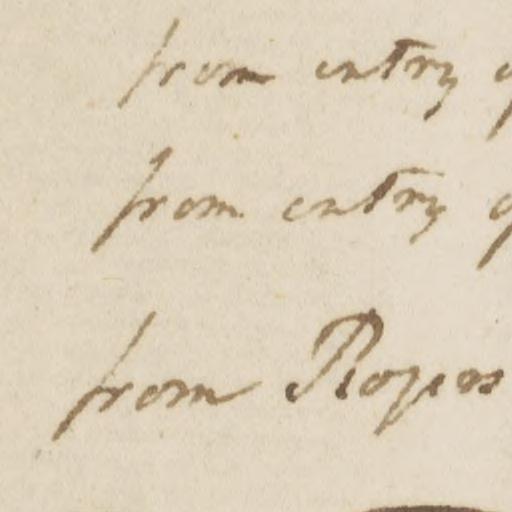 from entry
from entry
from Rogers